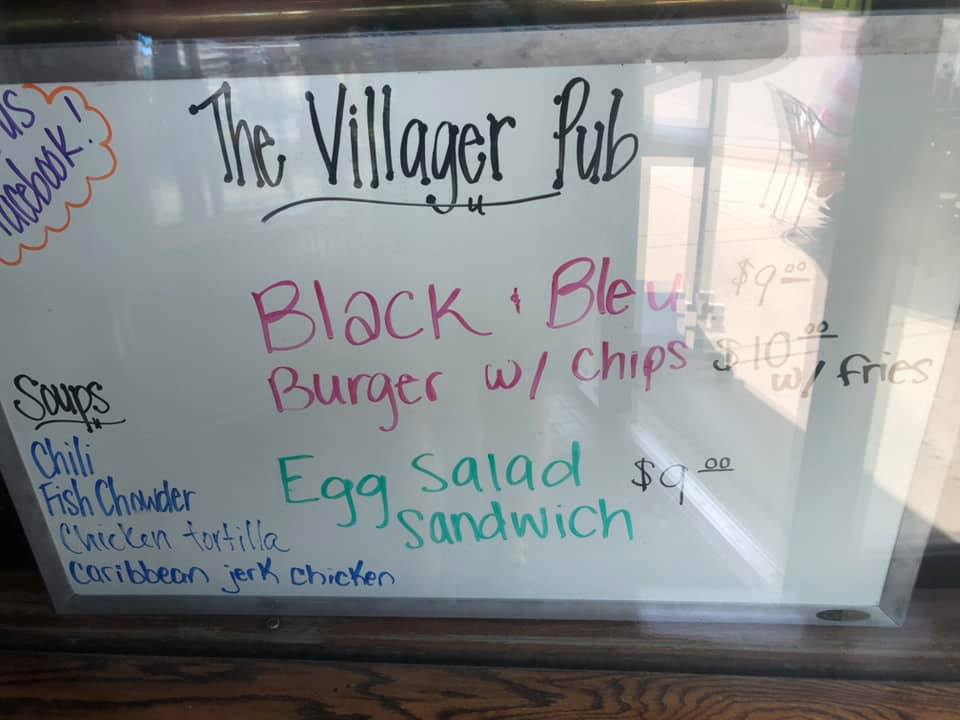 us
facebook!
The Villager Pub
Black & Bleu $9.00
Burger w/ Chips $10.00
w/ fries
Egg Salad $9.00
Sandwich
Soups
Chili
Fish Chowder
Chicken tortilla
Caribbean jerk chicken